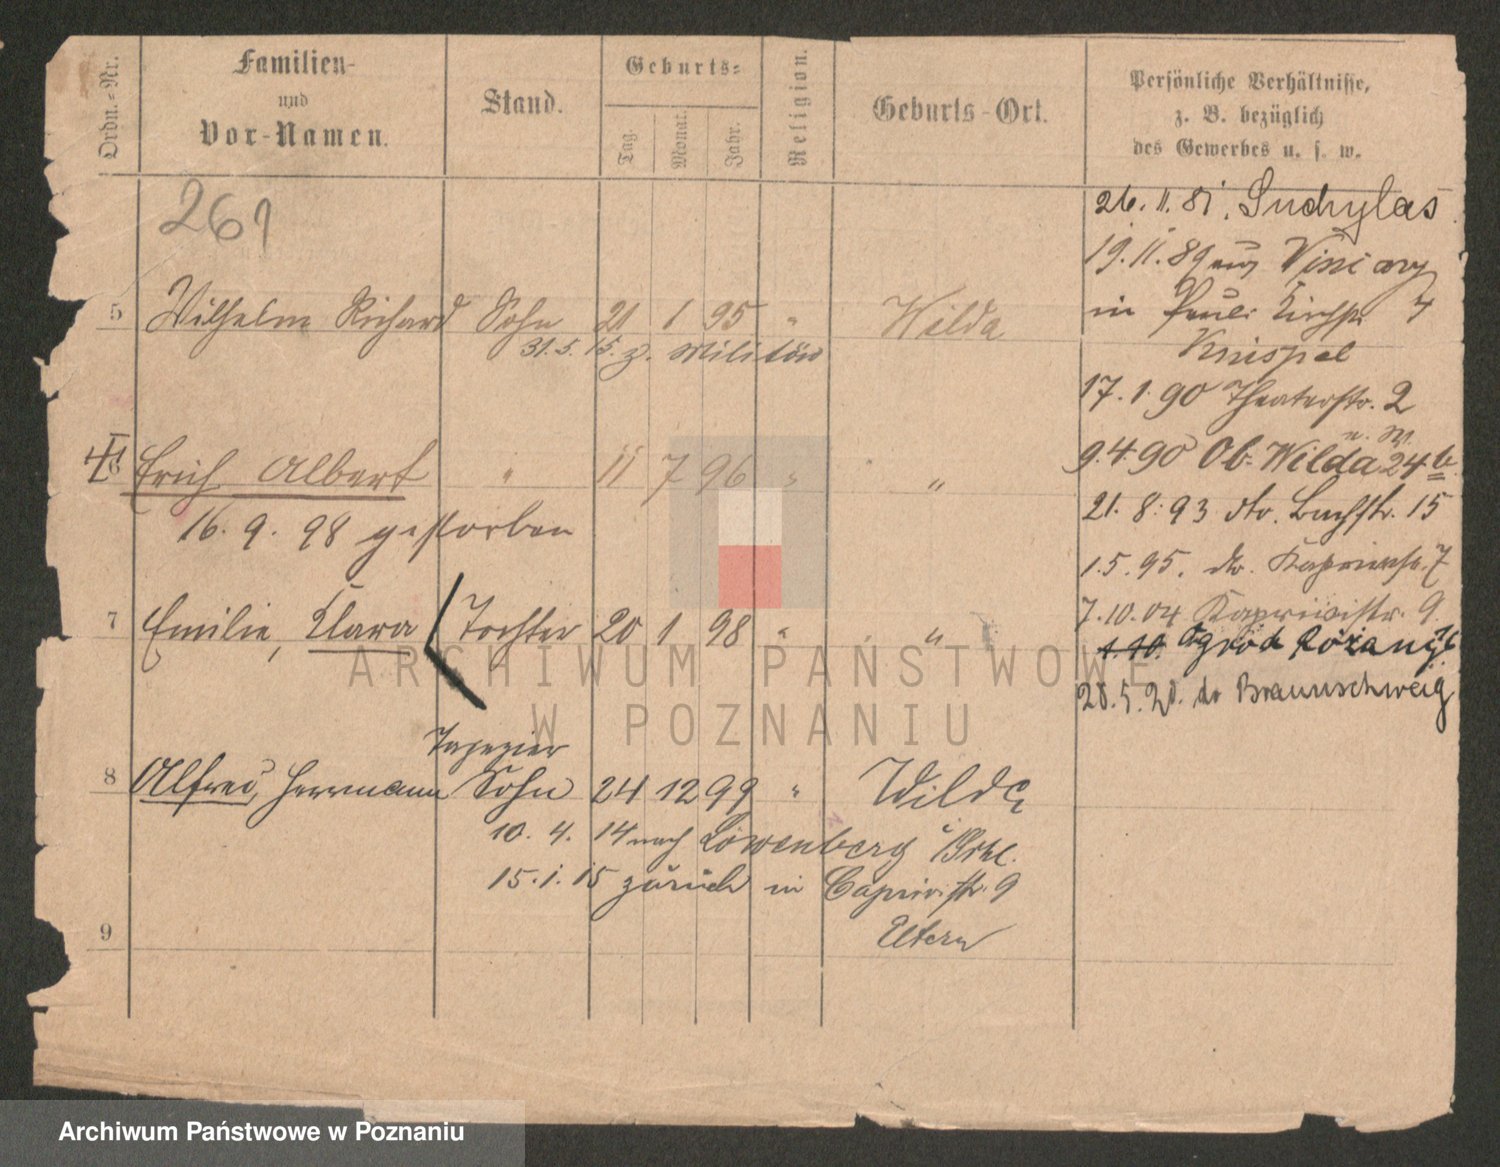 Ordn.-Nr.
Familien-
und
Vor-Namen.
Stand.
Geburts-
Tag.
Monat.
Jahr.
Religion.
Geburts-Ort.
Persönliche Verhältnisse,
z. B. bezüglich
des Gewerbes u. s. w.
261
26. 11. 81. Suchylas
19. 11. 89 aus Winiary
in Pauli Kirchstr 4
Knispel
17. 1. 90 Theaterstr. 2
9. 4. 90 Ob. Wilda 24 b
21. 8. 93 do. Bachstr. 15
1. 5. 95. do. Kaprivistr. 7
7. 10. 04 Kaprivistr. 9
1. 10. Ogród Różany
28. 5. 20. do Braunschweig
5 Wilhelm Richard Sohn 21 1 95 " Wilda
31. 5. 15. z. Militär
6 Erich Albert " 11 7 96 " "
16. 9. 98 gestorben
7 Emilie, Klara Tochter 20 1 98 " "
Tapezier
8 Alfred, Herrmann Sohn 24 12 99 " Wilda
10. 4. 14 nach Löwenberg i/Schl.
15. 1. 15 zurück in Caprivistr. 9
Eltern
9
ARCHIWUM PAŃSTWOWE
W POZNANIU
Archiwum Państwowe w Poznaniu